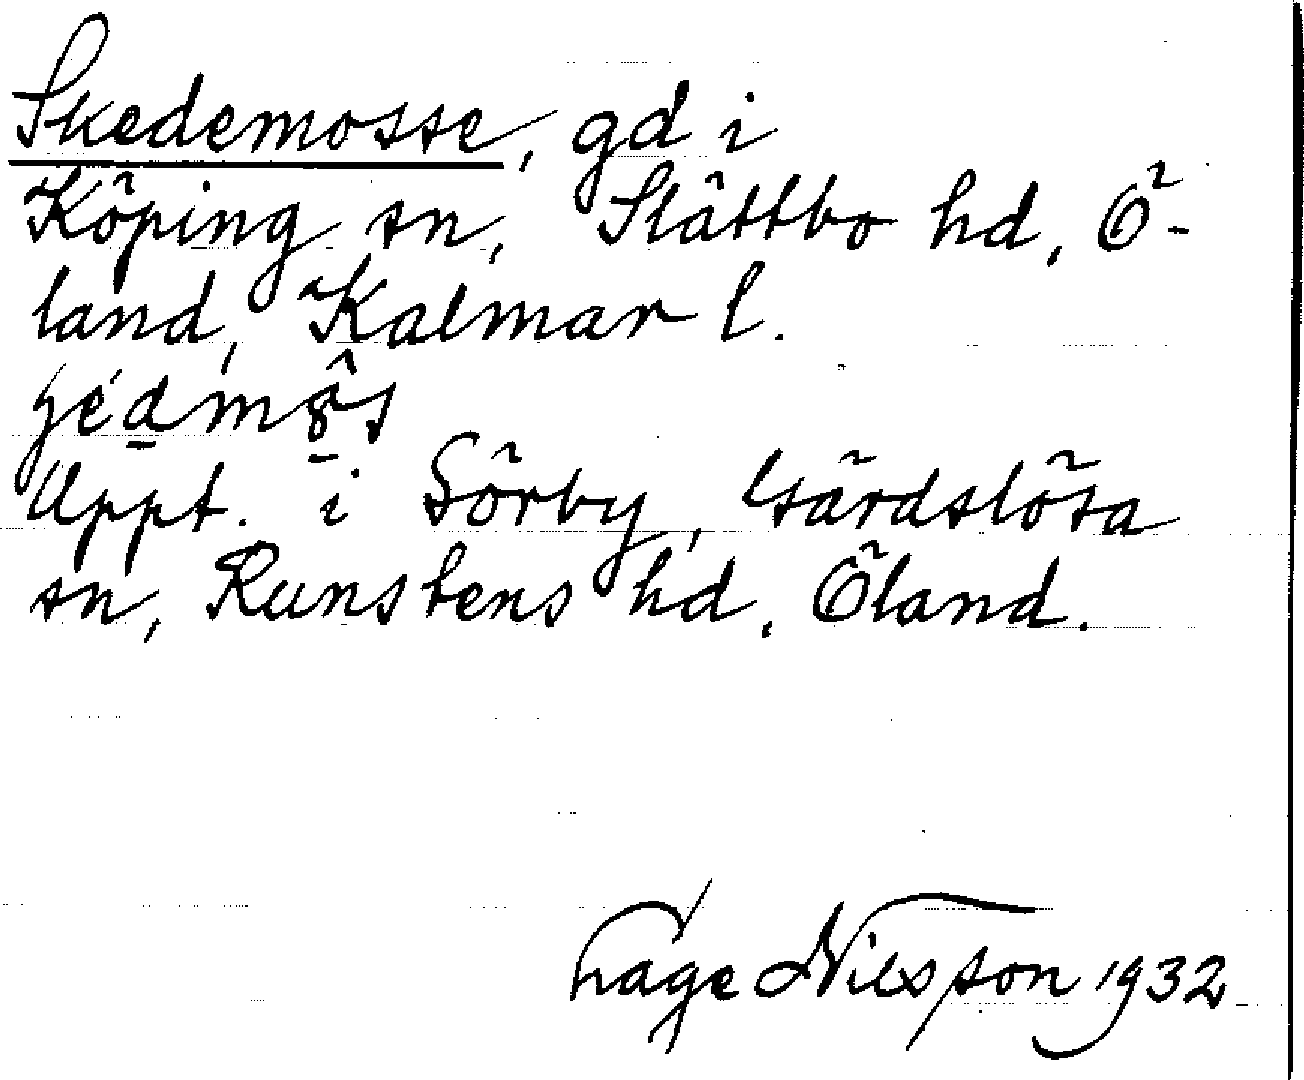 Skedemosse, gd i
Köping sn, Slättbo hd, Ö-
land, Kalmar l.
Uppt. i Sörby, Gärdslösa
sn, Runstens hd, Öland.
Tage Nilsson 1932